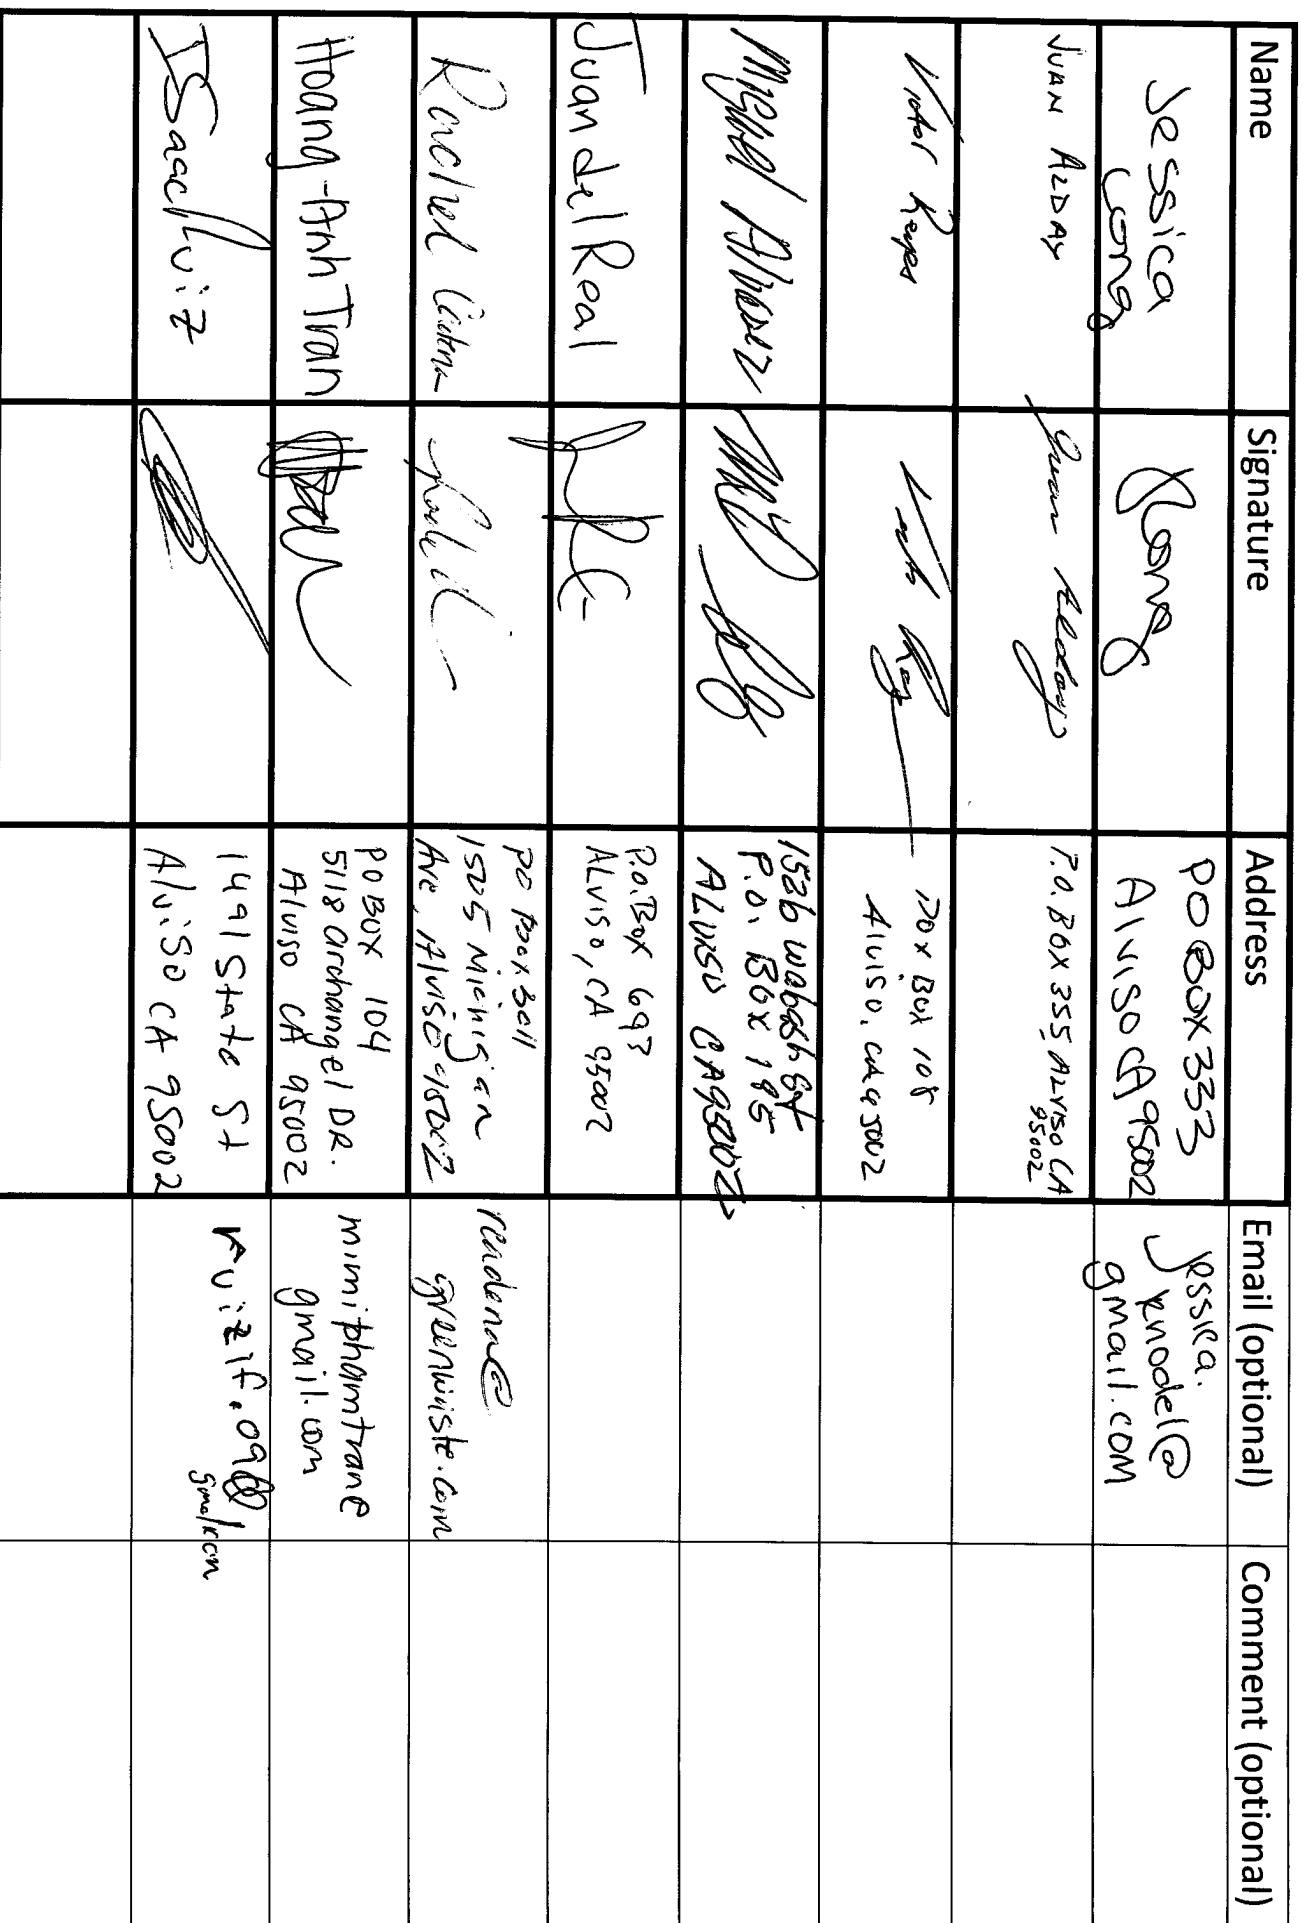 Name
Signature
Address
Email (optional)
Comment (optional)
Jessica
Long
JLong
PO BOX 333
Alviso CA 95002
jessica.
knodel@
gmail.com
JUAN ALDAY
Juan Alday
P.O. BOX 355 ALVISO CA
95002
Victor Reyes
Alviso, CA 95002
Miguel Alvarez
1526 wabash St
P.O. Box 195
ALVISO CA 95002
Juan del Real
P.O. Box 693
ALViso, CA 95002
Rachel
PO Box
1505 Michigan
Ave, Alviso 95002
@
greenwaste.com
Hoang-Anh Tran
PO BOX 104
5118 archangel DR.
Alviso CA 95002
mimiphamtran@
gmail.com
ISaac ruiz
1491 State St
AlviSo CA 95002